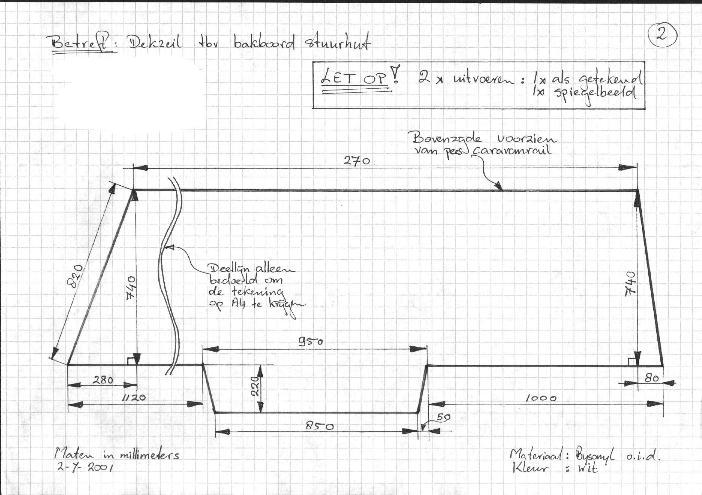 2
Betreft: Dekzeil tbv bakboord stuurhut
LET OP! 2 x uitvoeren: 1x als getekend
1x spiegelbeeld
Bovenzijde voorzien
van pees caravanrail
270
820
740
Deellijn alleen
bedoeld om
de tekening
op A4 te krijgen
740
950
220
280
80
1120
50
1000
850
Maten in millimeters
2-7-2001
Materiaal: Bysonyl o.i.d.
Kleur : wit